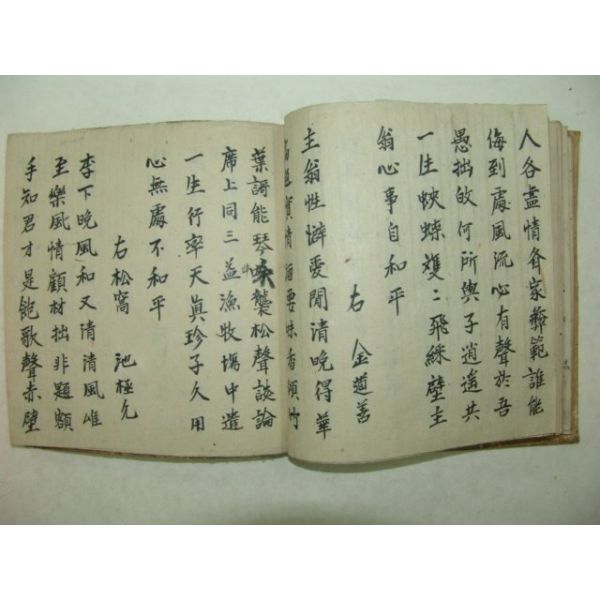 人各盡情各家彝範誰能
侮到處風流心有聲於吾
愚拙的何所與子逍遙共
一生蛺蝶雙二飛綵壁主
翁心事自和平
右 金道善
主翁性癖愛閒清晚得華
葉調能琴 襲松聲談論
席上同三益漁牧場中遣
一生行率天眞珍子久用
心無處不和平
右松窩 池極允
李下晚風和又清清風唯
至樂風情顧材拙非題額
手知君才是飽歌聲赤壁